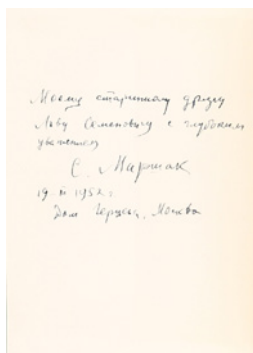 Моему старинному другу
Льву Семеновичу с глубоким
уважением
С. Маршак
19 II 1952 г.
Дом Герцена, Москва